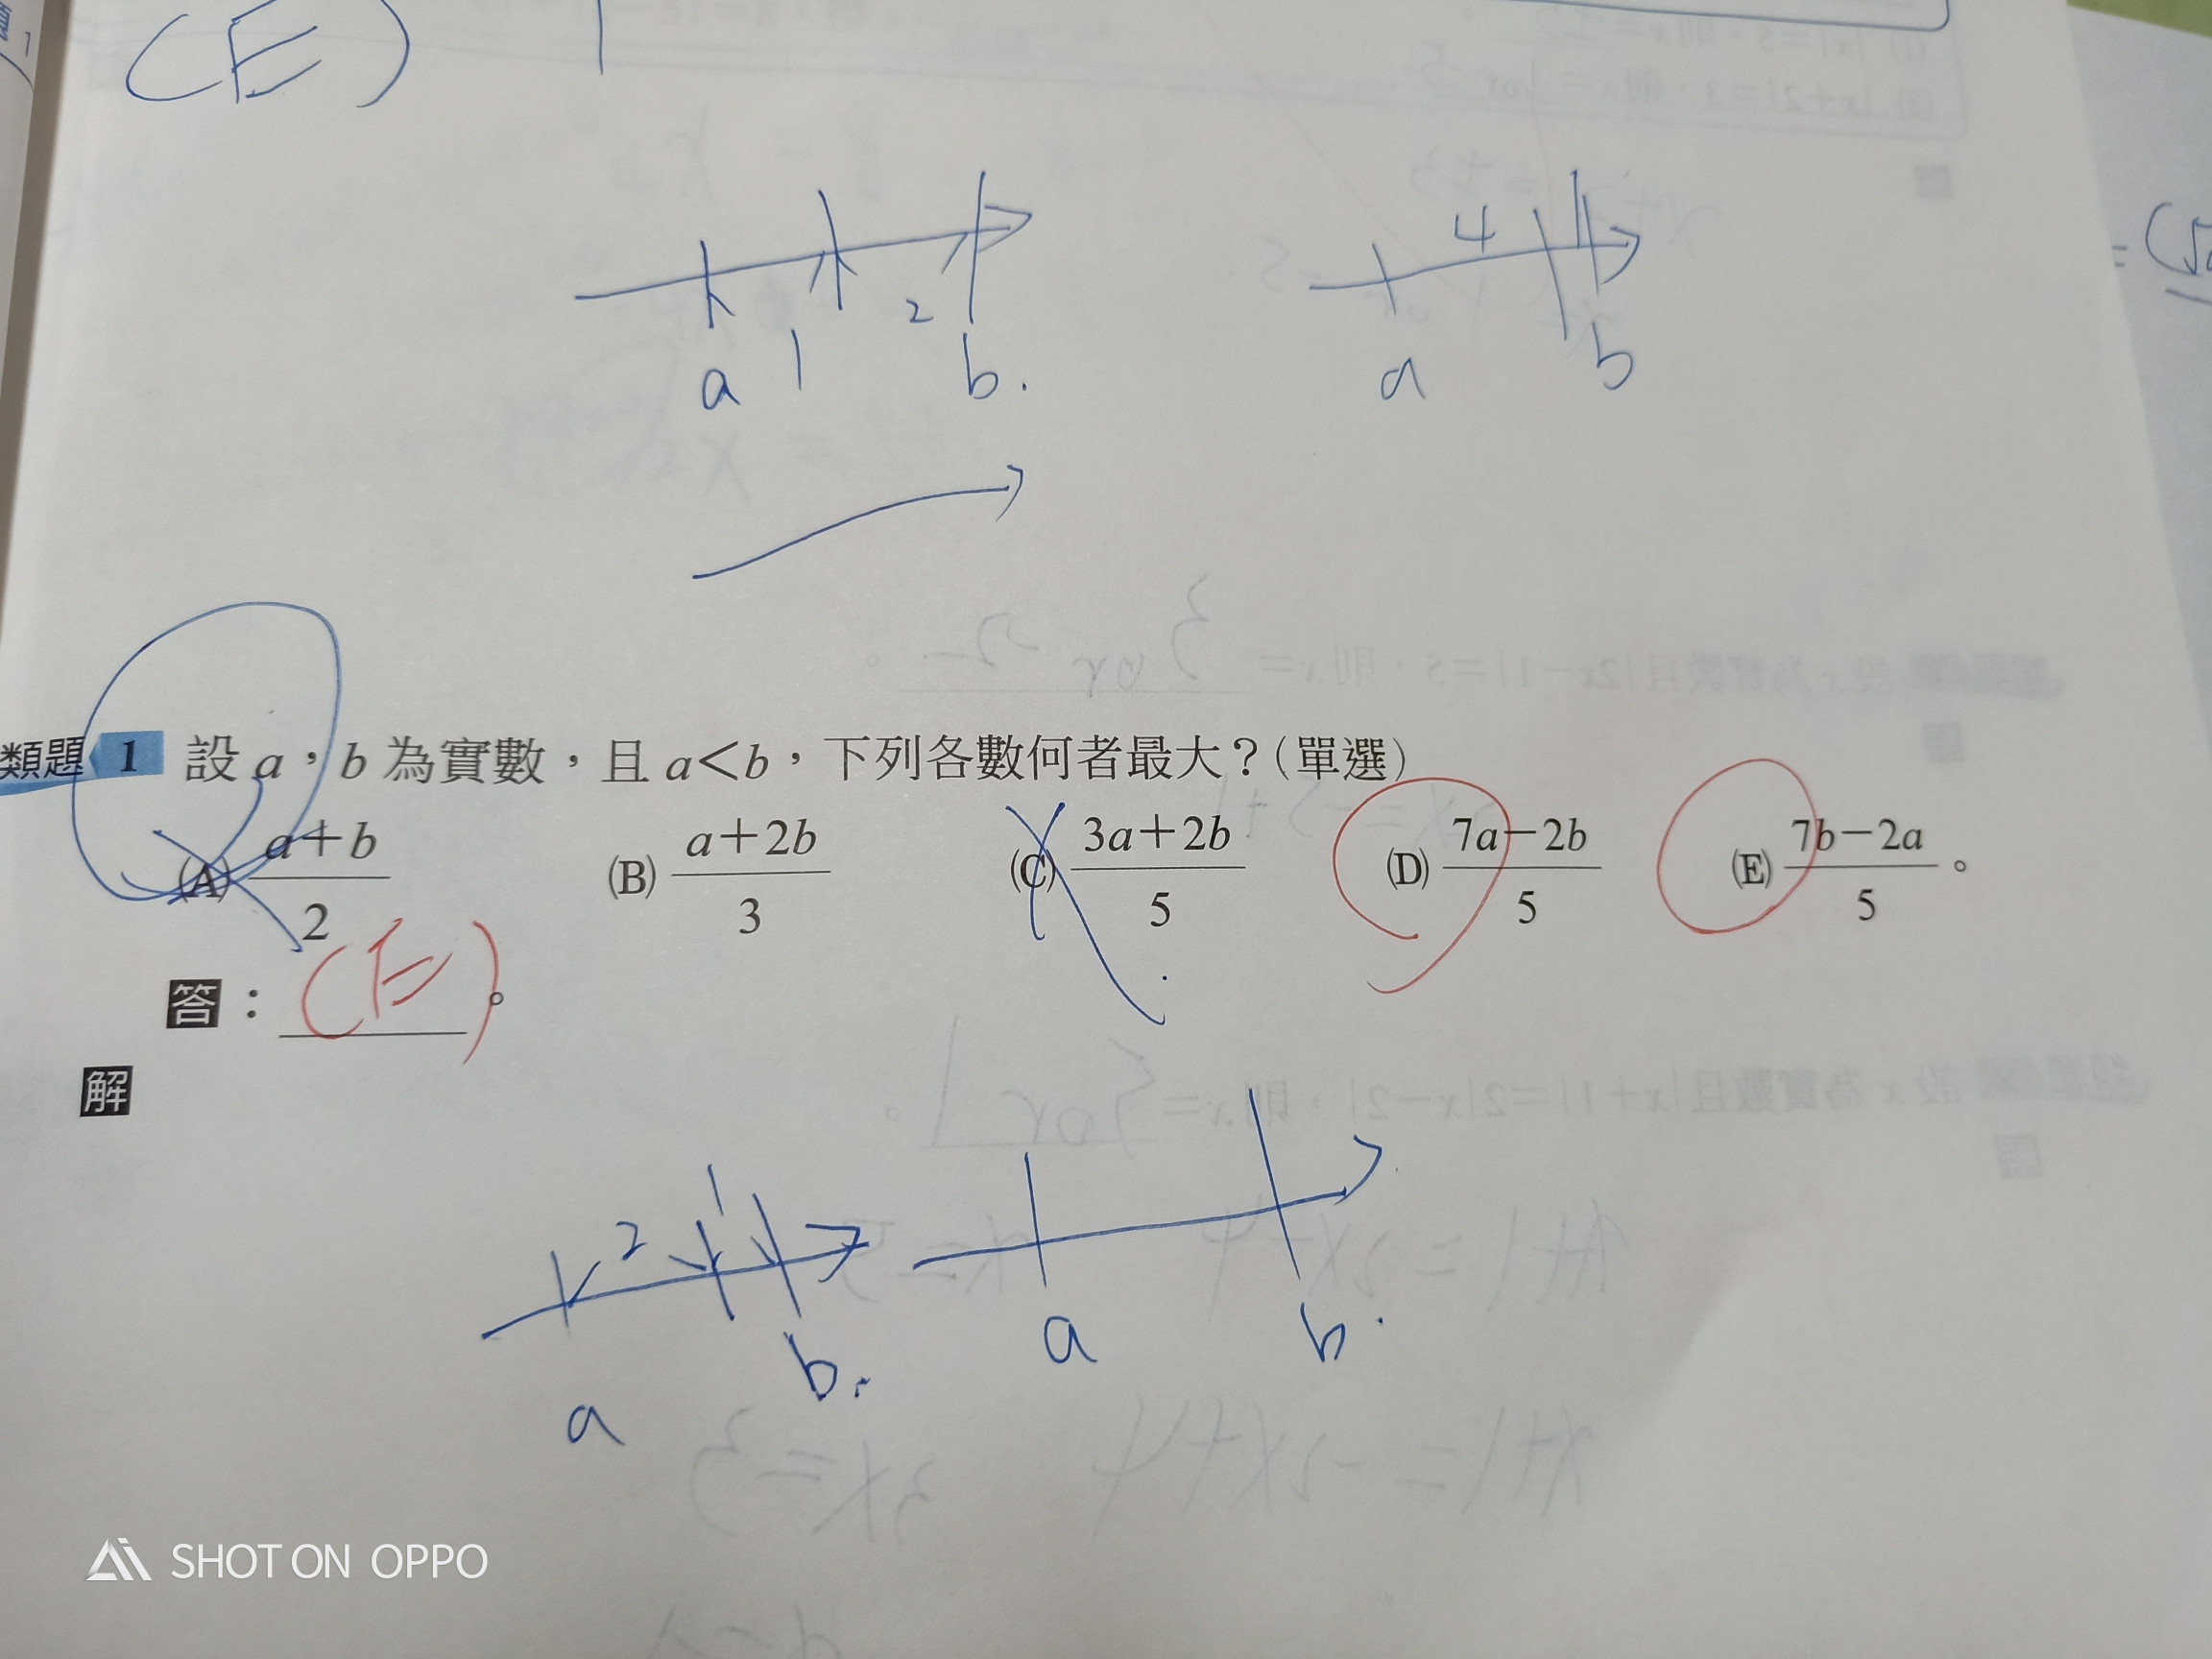 (E)
1 2
a b.
4
a b
類題 1 設 a，b 為實數，且 a＜b，下列各數何者最大？(單選)
(A) a＋b/2 (B) a＋2b/3 (C) 3a＋2b/5 (D) 7a－2b/5 (E) 7b－2a/5。
答：(E)。
解
2 1
a b.
a b.
SHOT ON OPPO